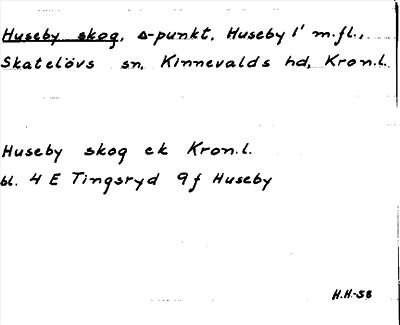 Huseby skog, △-punkt, Huseby 1' m.fl.,
Skatelövs sn, Kinnevalds hd, Kron.l.
Huseby skog ek Kron.l.
bl. 4 E Tingsryd 9f Huseby
H.H.-58